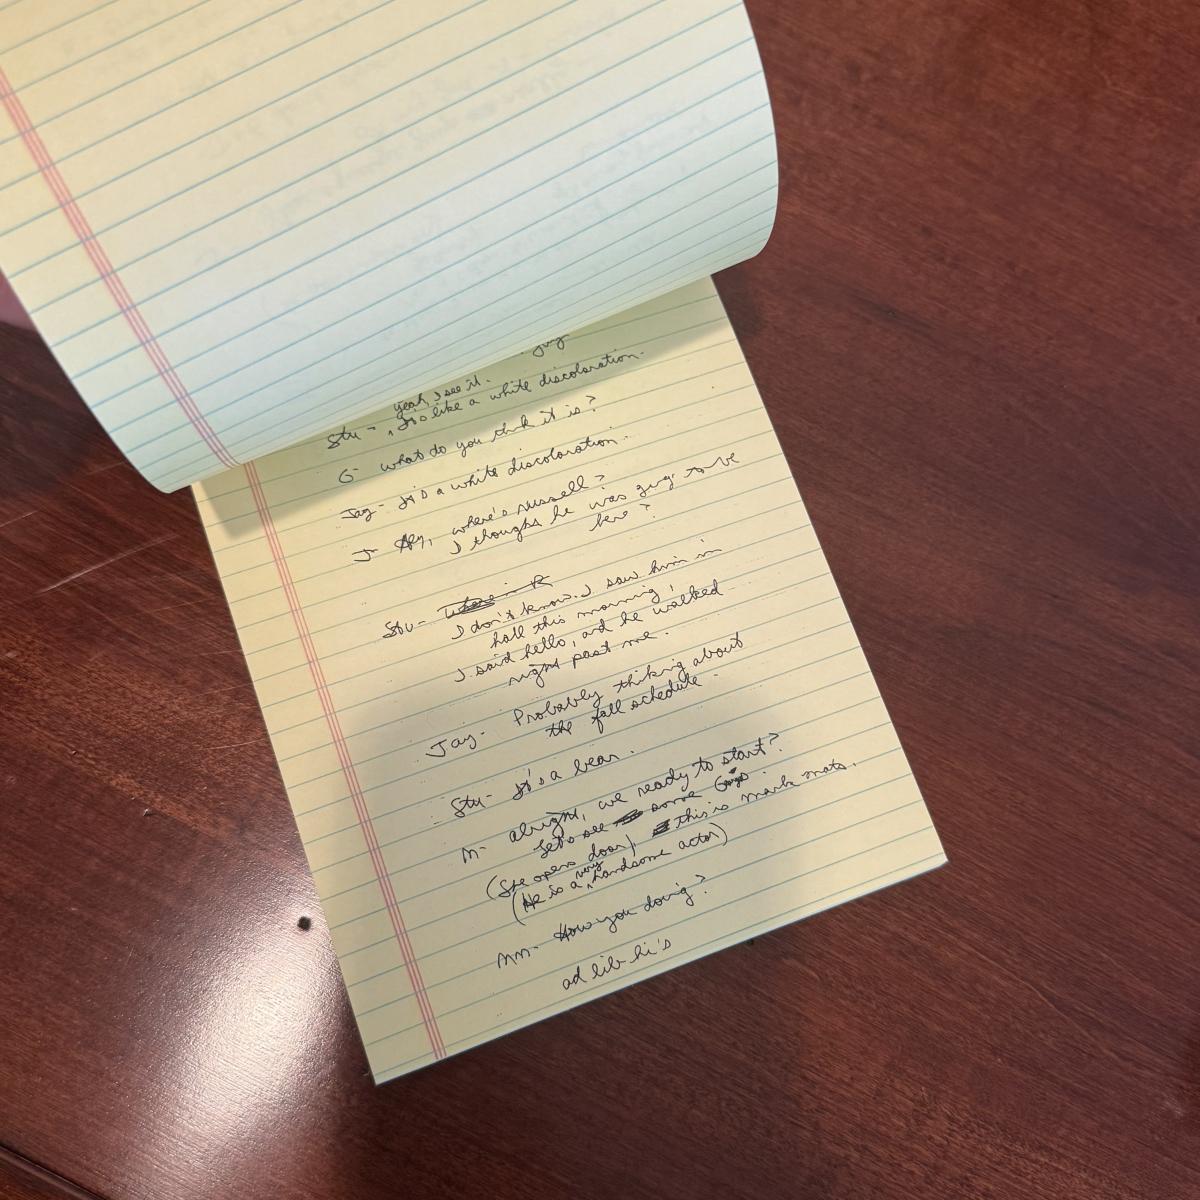 guy
yeah, I see it.
Stu - , It's like a white discoloration.
G - what do you think it is?
Jay - It's a white discoloration.
J - Hey, where's russell?
I thought he was going to be
here?
Stu - I don't know. I saw him in
hall this morning,
I said hello, and he walked
right past me.
Jay - Probably thinking about
the fall schedule.
Stu - It's a bear.
M - alright, we ready to start?
let's see some Guys
(She opens door) this is mark mats.
(He is a very handsome actor)
MM - How you doing?
ad lib hi's